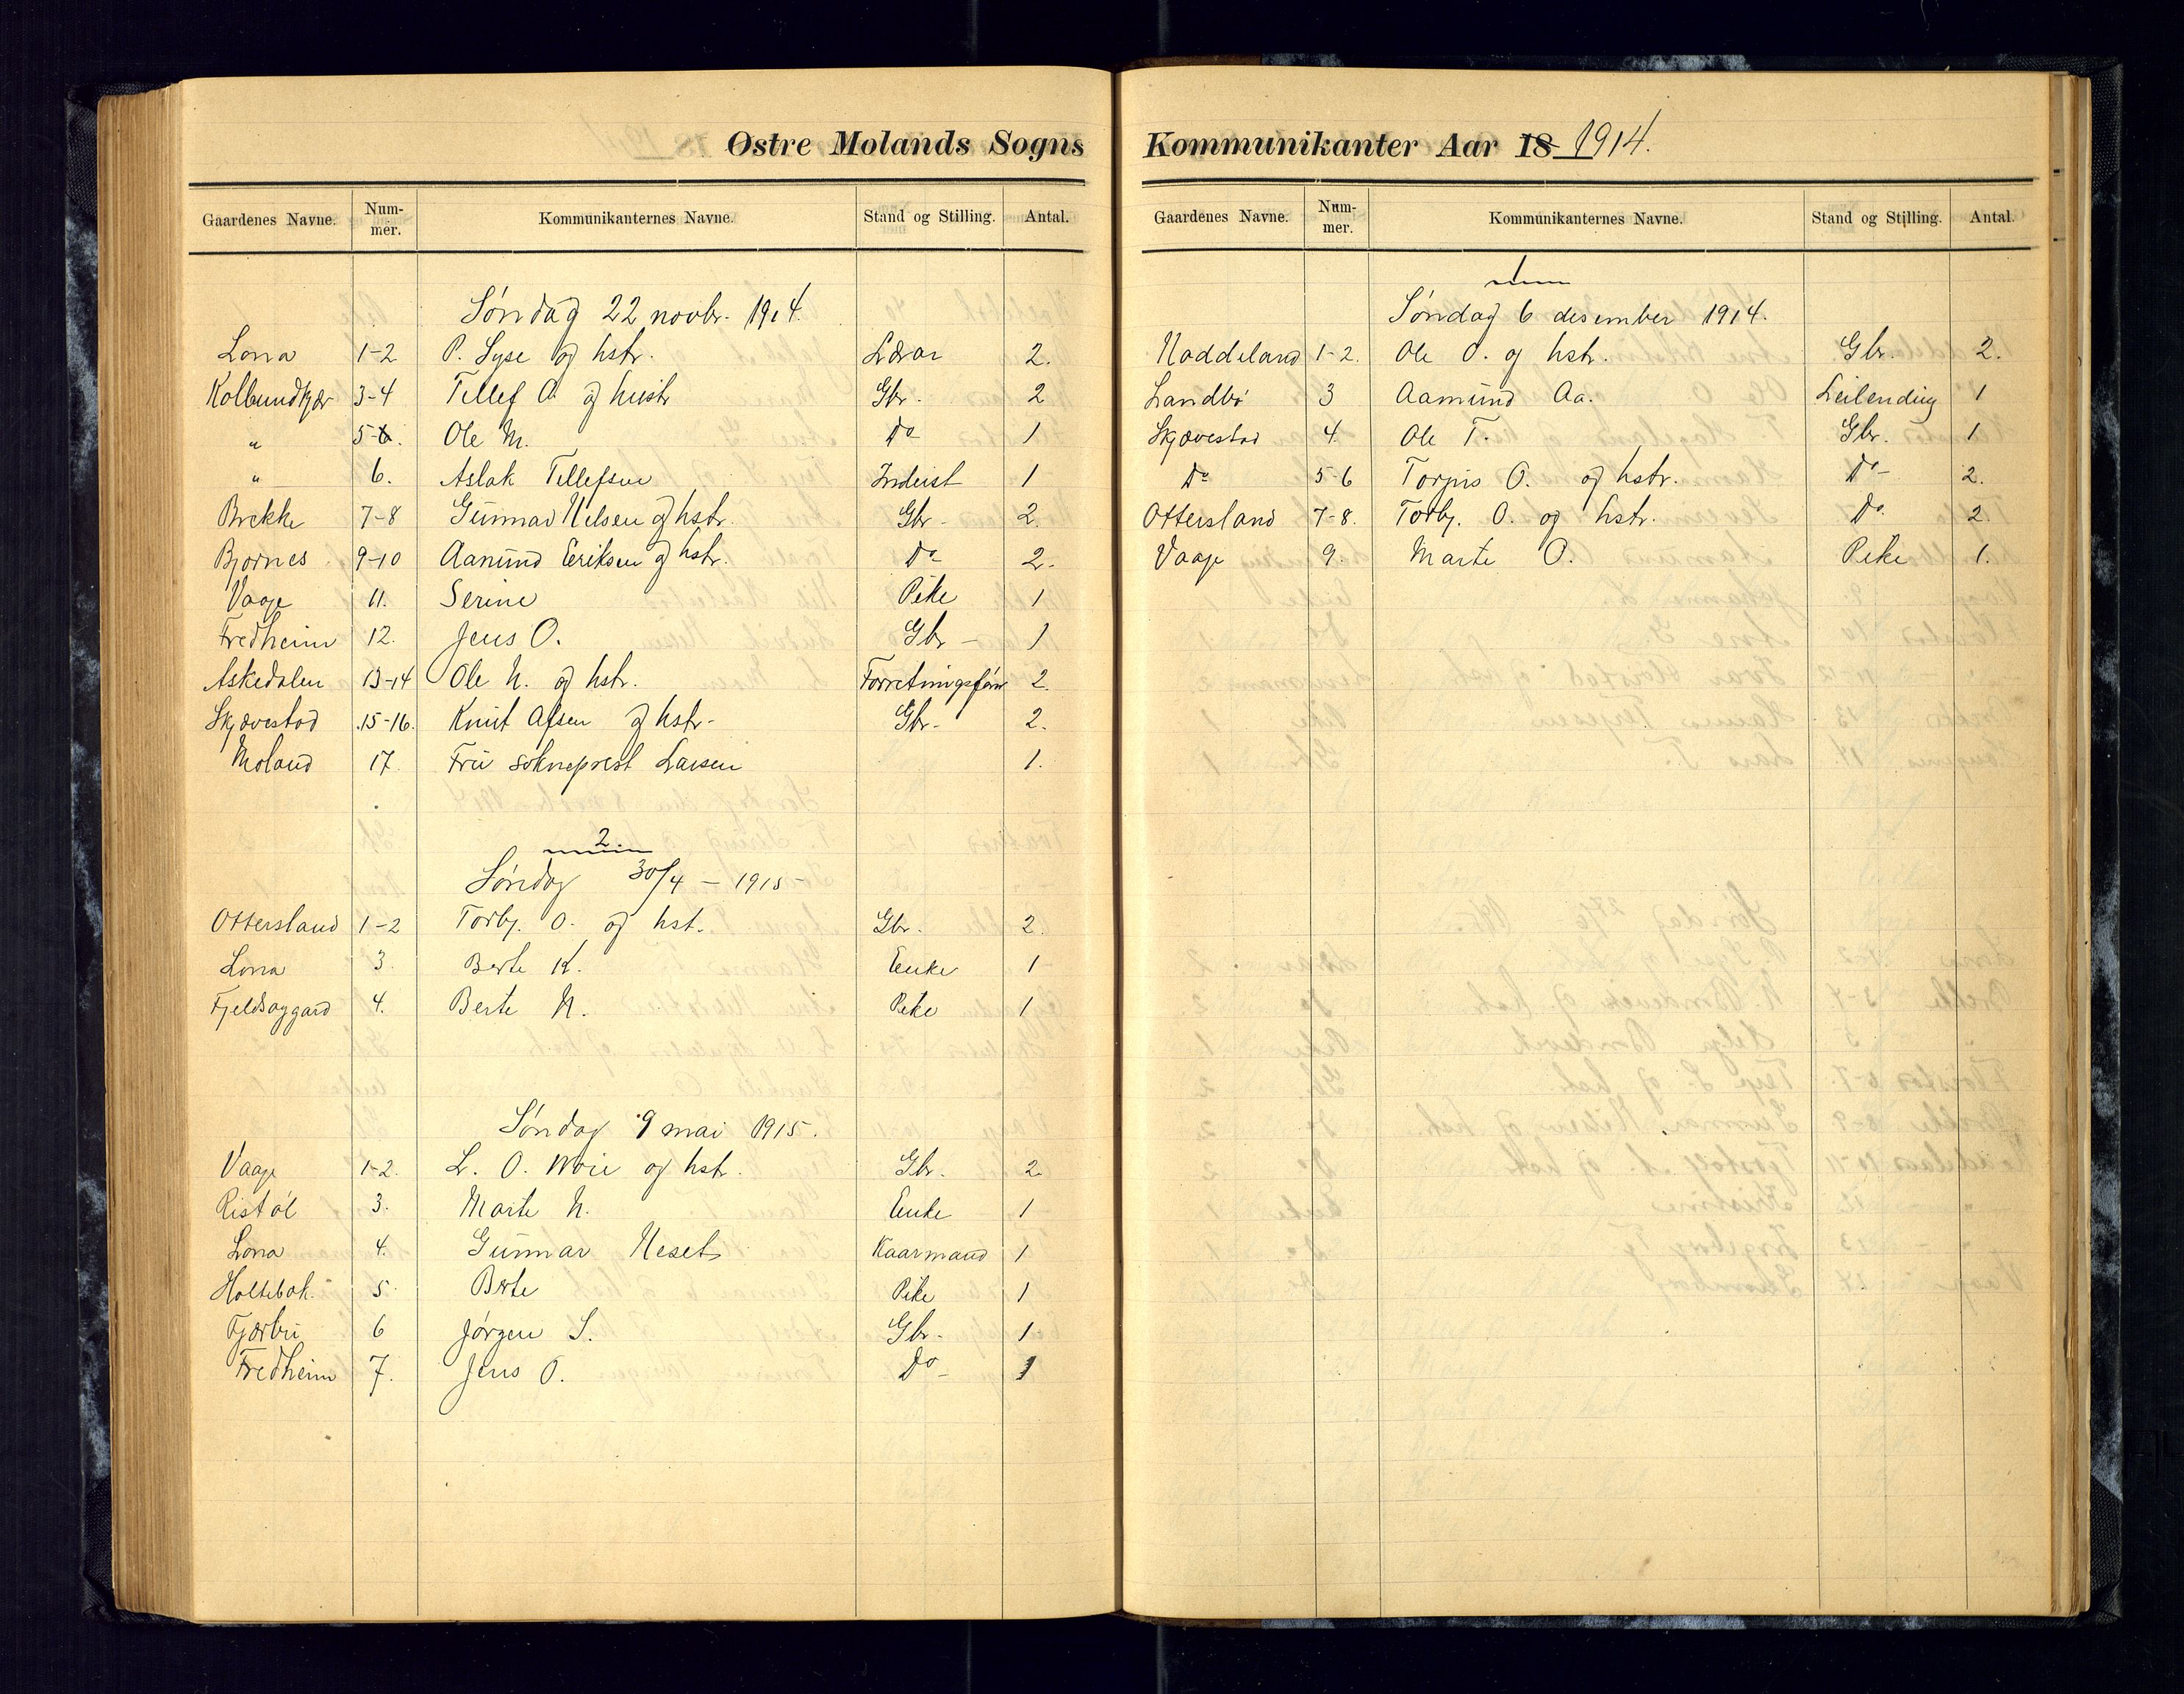 Østre Molands Sogns
Gaardenes Navne. Num-mer. Kommunikanternes Navne. Stand og Stilling. Antal.
Søndag 22 novbr. 1914.
Lona 1-2 P. Lyse og hstr. Lærar 2.
Kolbundkjær 3-4 Tellef O. og hustr Gbr. 2
" 5 Ole M. Do 1
" 6. Aslak Tellefsen Inderst 1
Brekke 7-8 Gunnar Nilsen og hstr. Gbr - 2.
Bjornes 9-10 Aanund Eeriksen og hstr. Do 2.
Vaage 11. Serine Pike 1
Fredheim 12. Jens O. Gbr - 1
Askedalen 13-14 Ole N. og hstr. 2.
Skjævestad 15-16. Knut og hstr- Gbr- 2.
Moland 17. Fru sokneprest Larsen 1.
2
Søndag 30/4 - 1915 -
Ottersland 1-2 Torbj. O. og hst. Gbr. 2.
Lona 3. Berte K. Enke 1
4. Berte N. Pike 1
Søndag 9 mai 1915.
Vaage 1-2. L. O. og hstr. Gbr. 2
Ristøl 3. Marte N. Enke 1
Lona 4. Gunnar Neset Kaarmand 1
Holtebak. 5. Berte Pike 1
Fjærbu 6 Jørgen S. Gbr- 1
Fredheim 7. Jens O. Do- 1
Kommunikanter Aar 18 1914.
Gaardenes Navne. Num-mer. Kommunikanternes Navne. Stand og Stilling. Antal.
1
Søndag 6 desember 1914.
Naddeland 1-2. Ole O. og hstr. Gbr. 2.
Landbø 3 Aamund Aa. Leilending 1
Skjævestad 4. Ole T. Gbr. 1
Do 5-6 Torjus O. og hstr. Do- 2.
Ottersland 7-8. Torbj. O. og hstr. Do. 2.
Vaage 9. Marte O. Pike 1.